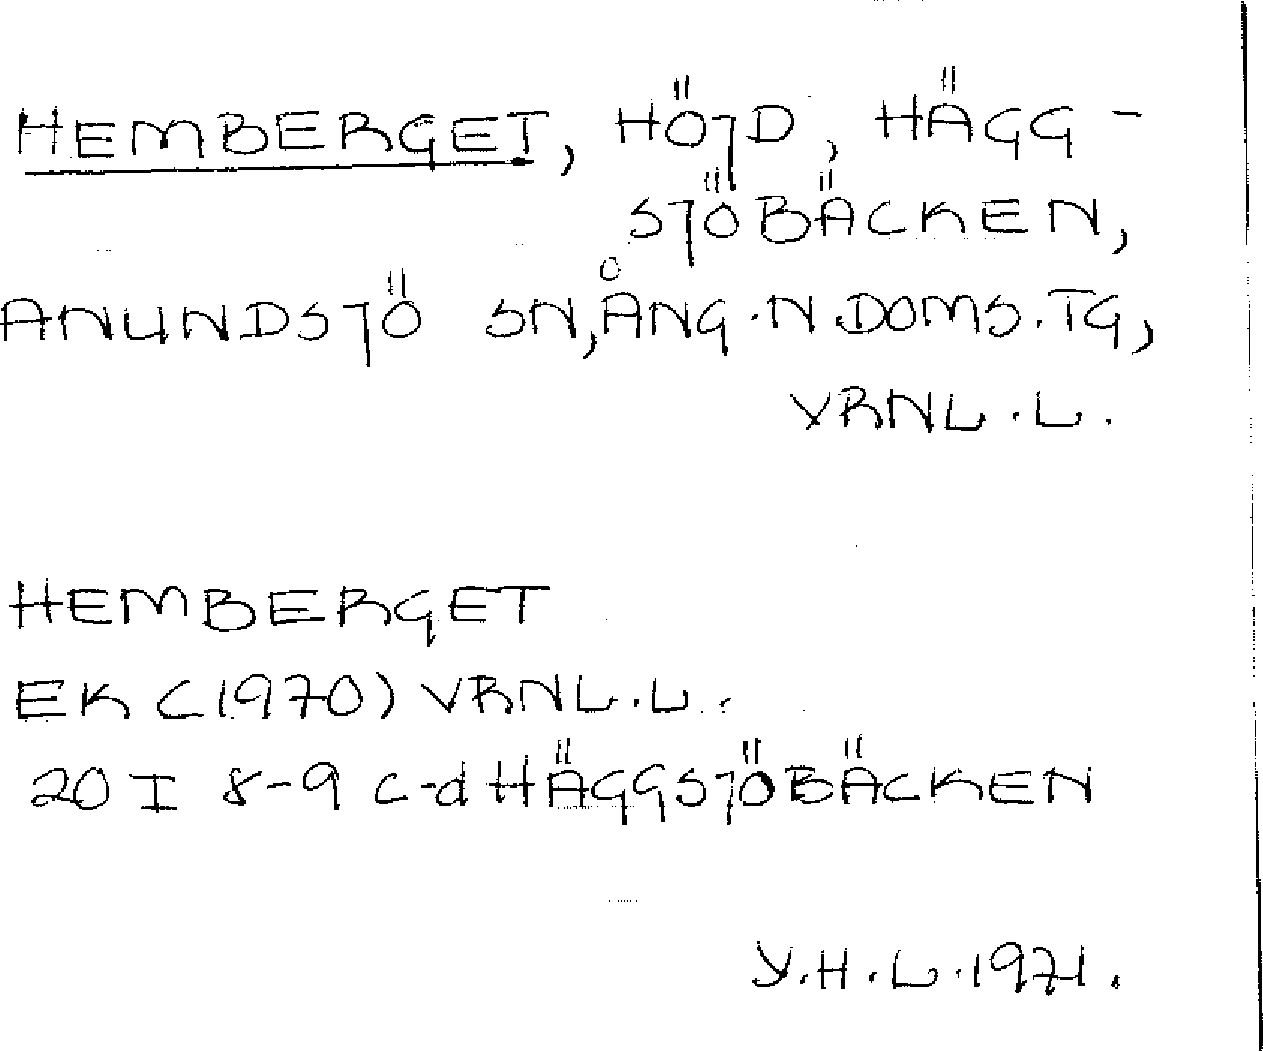 HEMBERGET, HÖJD, HÄGG-
SJÖBÄCKEN,
ANUNDSJÖ SN, ÅNG.N.DOMS.TG,
VRNL.L.
HEMBERGET
EK (1970) VRNL.L.
20 I 8-9 c-d HÄGGSJÖBÄCKEN
Y.H.L.1971.